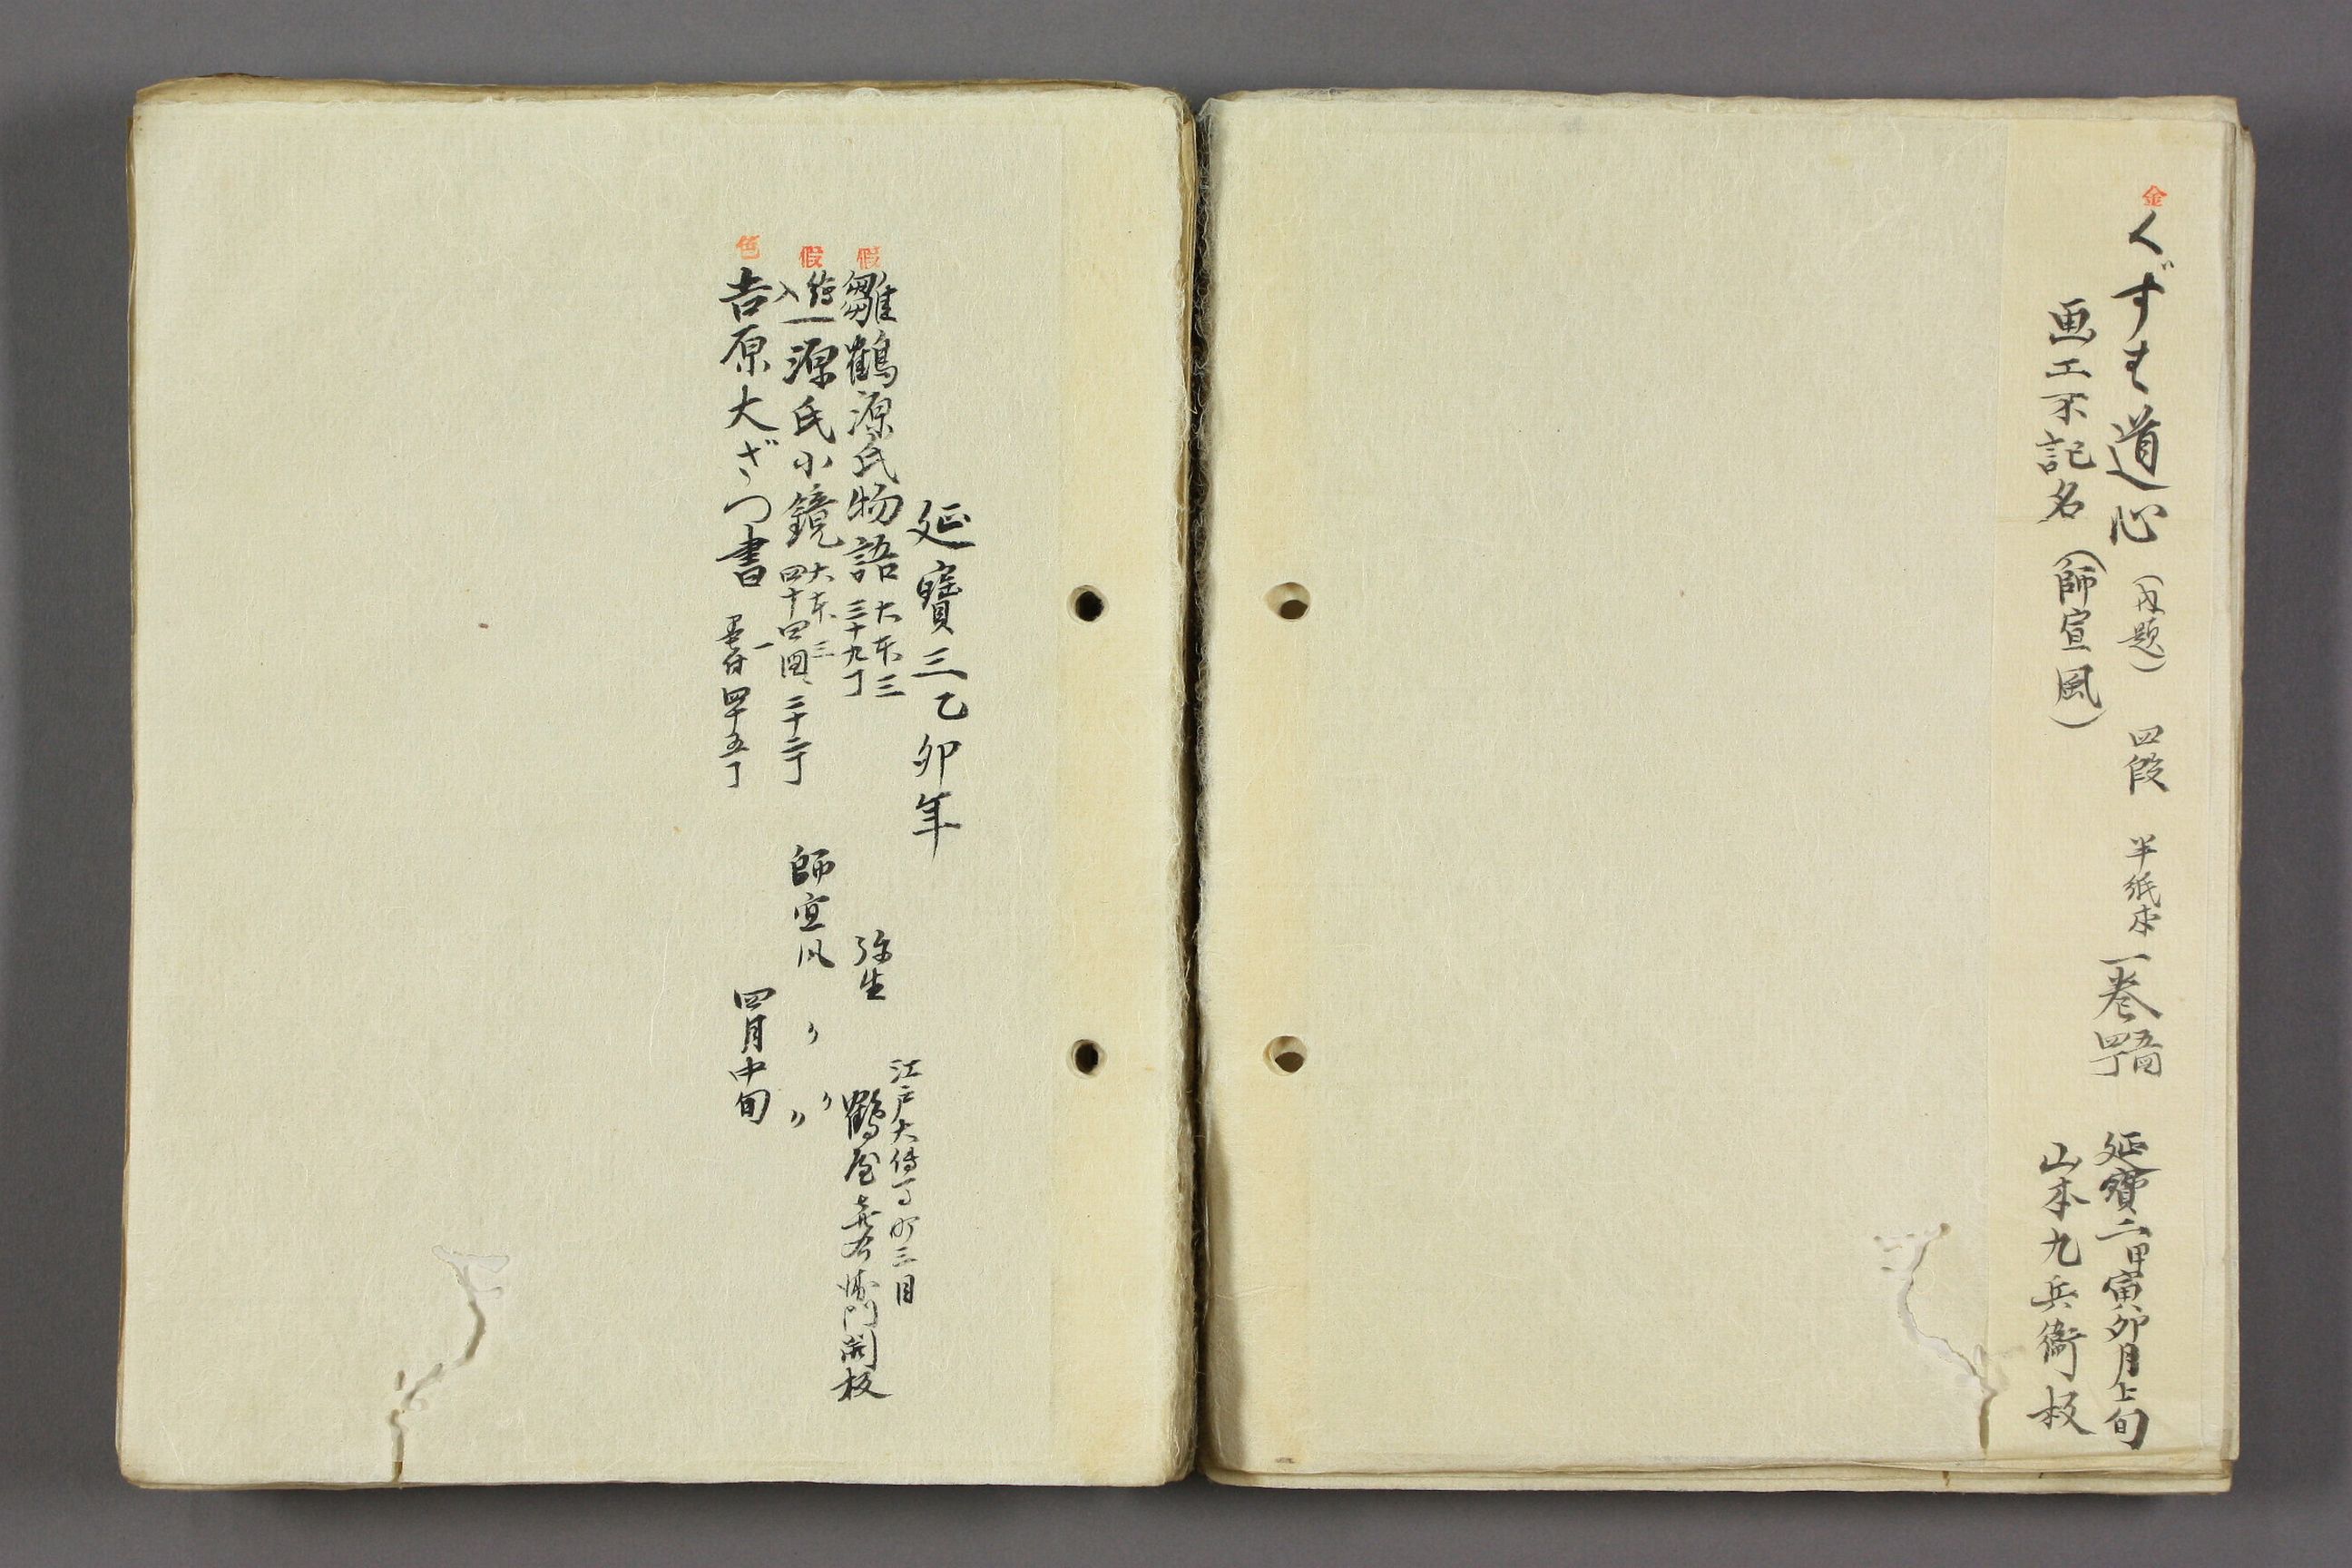 金
くずは道心 (内題) 四段 半紙本 一巻 四丁 五図 延寶二甲寅卯月上旬
画工不記名 (師宣風) 山本九兵衛板
延寶三乙卯年
假
雛鶴源氏物語 大本三 三十九丁 弥生 江戸大傳馬町三目 鶴屋喜右衛門開板
假
繪入 源氏小鏡 大本三 四十四図、二十二丁 師宣風 〃 〃
色
吉原大ざつ書 一 四十五丁 四月中旬